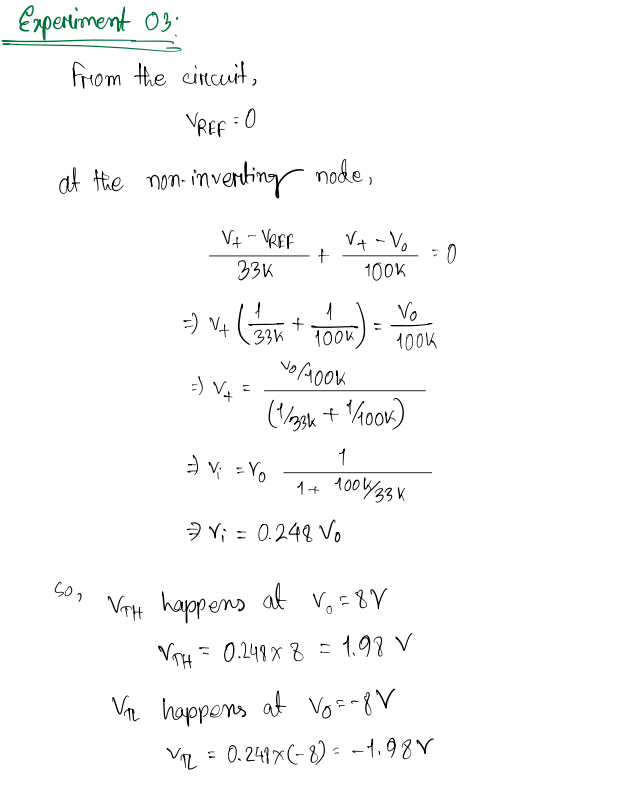 Experiment 03:
From the circuit,
V_REF = 0
at the non-inverting node,
(V₊ - V_REF)/33K + (V₊ - V₀)/100K = 0
⇒ V₊ (1/33K + 1/100K) = V₀/100K
⇒ V₊ = (V₀/100K)/(1/33K + 1/100K)
⇒ Vᵢ = V₀ 1/(1 + 100K/33K)
⇒ Vᵢ = 0.248 V₀
So, V_TH happens at V₀ = 8V
V_TH = 0.248 × 8 = 1.98 V
V_TL happens at V₀ = -8V
V_TL = 0.248 × (-8) = -1.98V